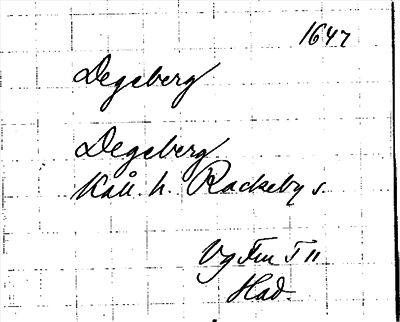 1647
Degeberg
Degeberg
Kåll. h. Rackeby s.
Vg Fm T 11
Had.